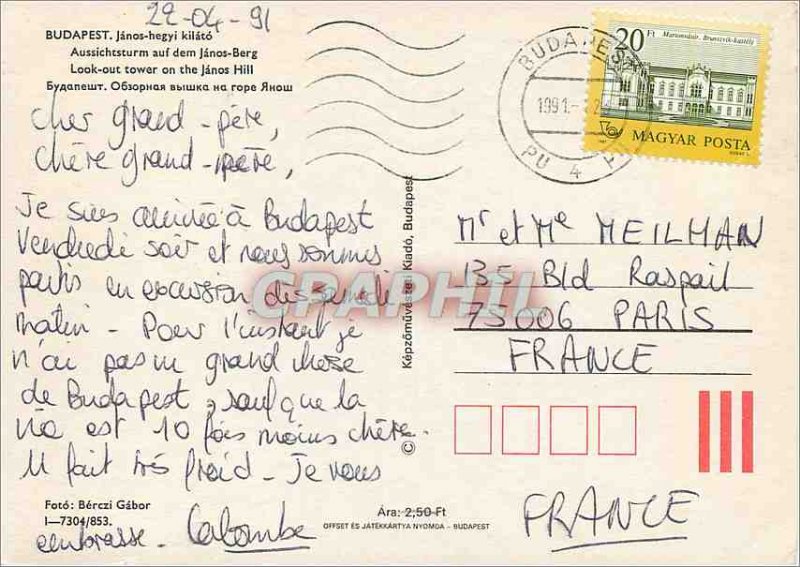 22-04-91
BUDAPEST. János-hegyi kilátó
Aussichtsturm auf dem János-Berg
Look-out tower on the János Hill
Будапешт. Обзорная вышка на горе Янош
Cher grand-père,
Chère grand-mère,
Je suis arrivée à Budapest
Vendredi soir et nous sommes
partis en excursion dès samedi
matin - Pour l'instant je
n'ai pas vu grand chose
de Budapest, sauf que la
vie est 10 fois moins chère.
Il fait très froid - Je vous
embrasse - Colombe
Fotó: Bérczi Gábor
I—7304/853.
Képzőművészeti Kiadó, Budapest
©
Ára: 2,50 Ft
OFFSET ÉS JÁTÉKKÁRTYA NYOMDA - BUDAPEST
BUDAPEST
1991.
PU 4
20 Ft
Martonvásár, Brunszvik-kastély
MAGYAR POSTA
Mr et Me MEILMAN
135 Bld Raspail
75006 PARIS
FRANCE
FRANCE
CRAPHIL